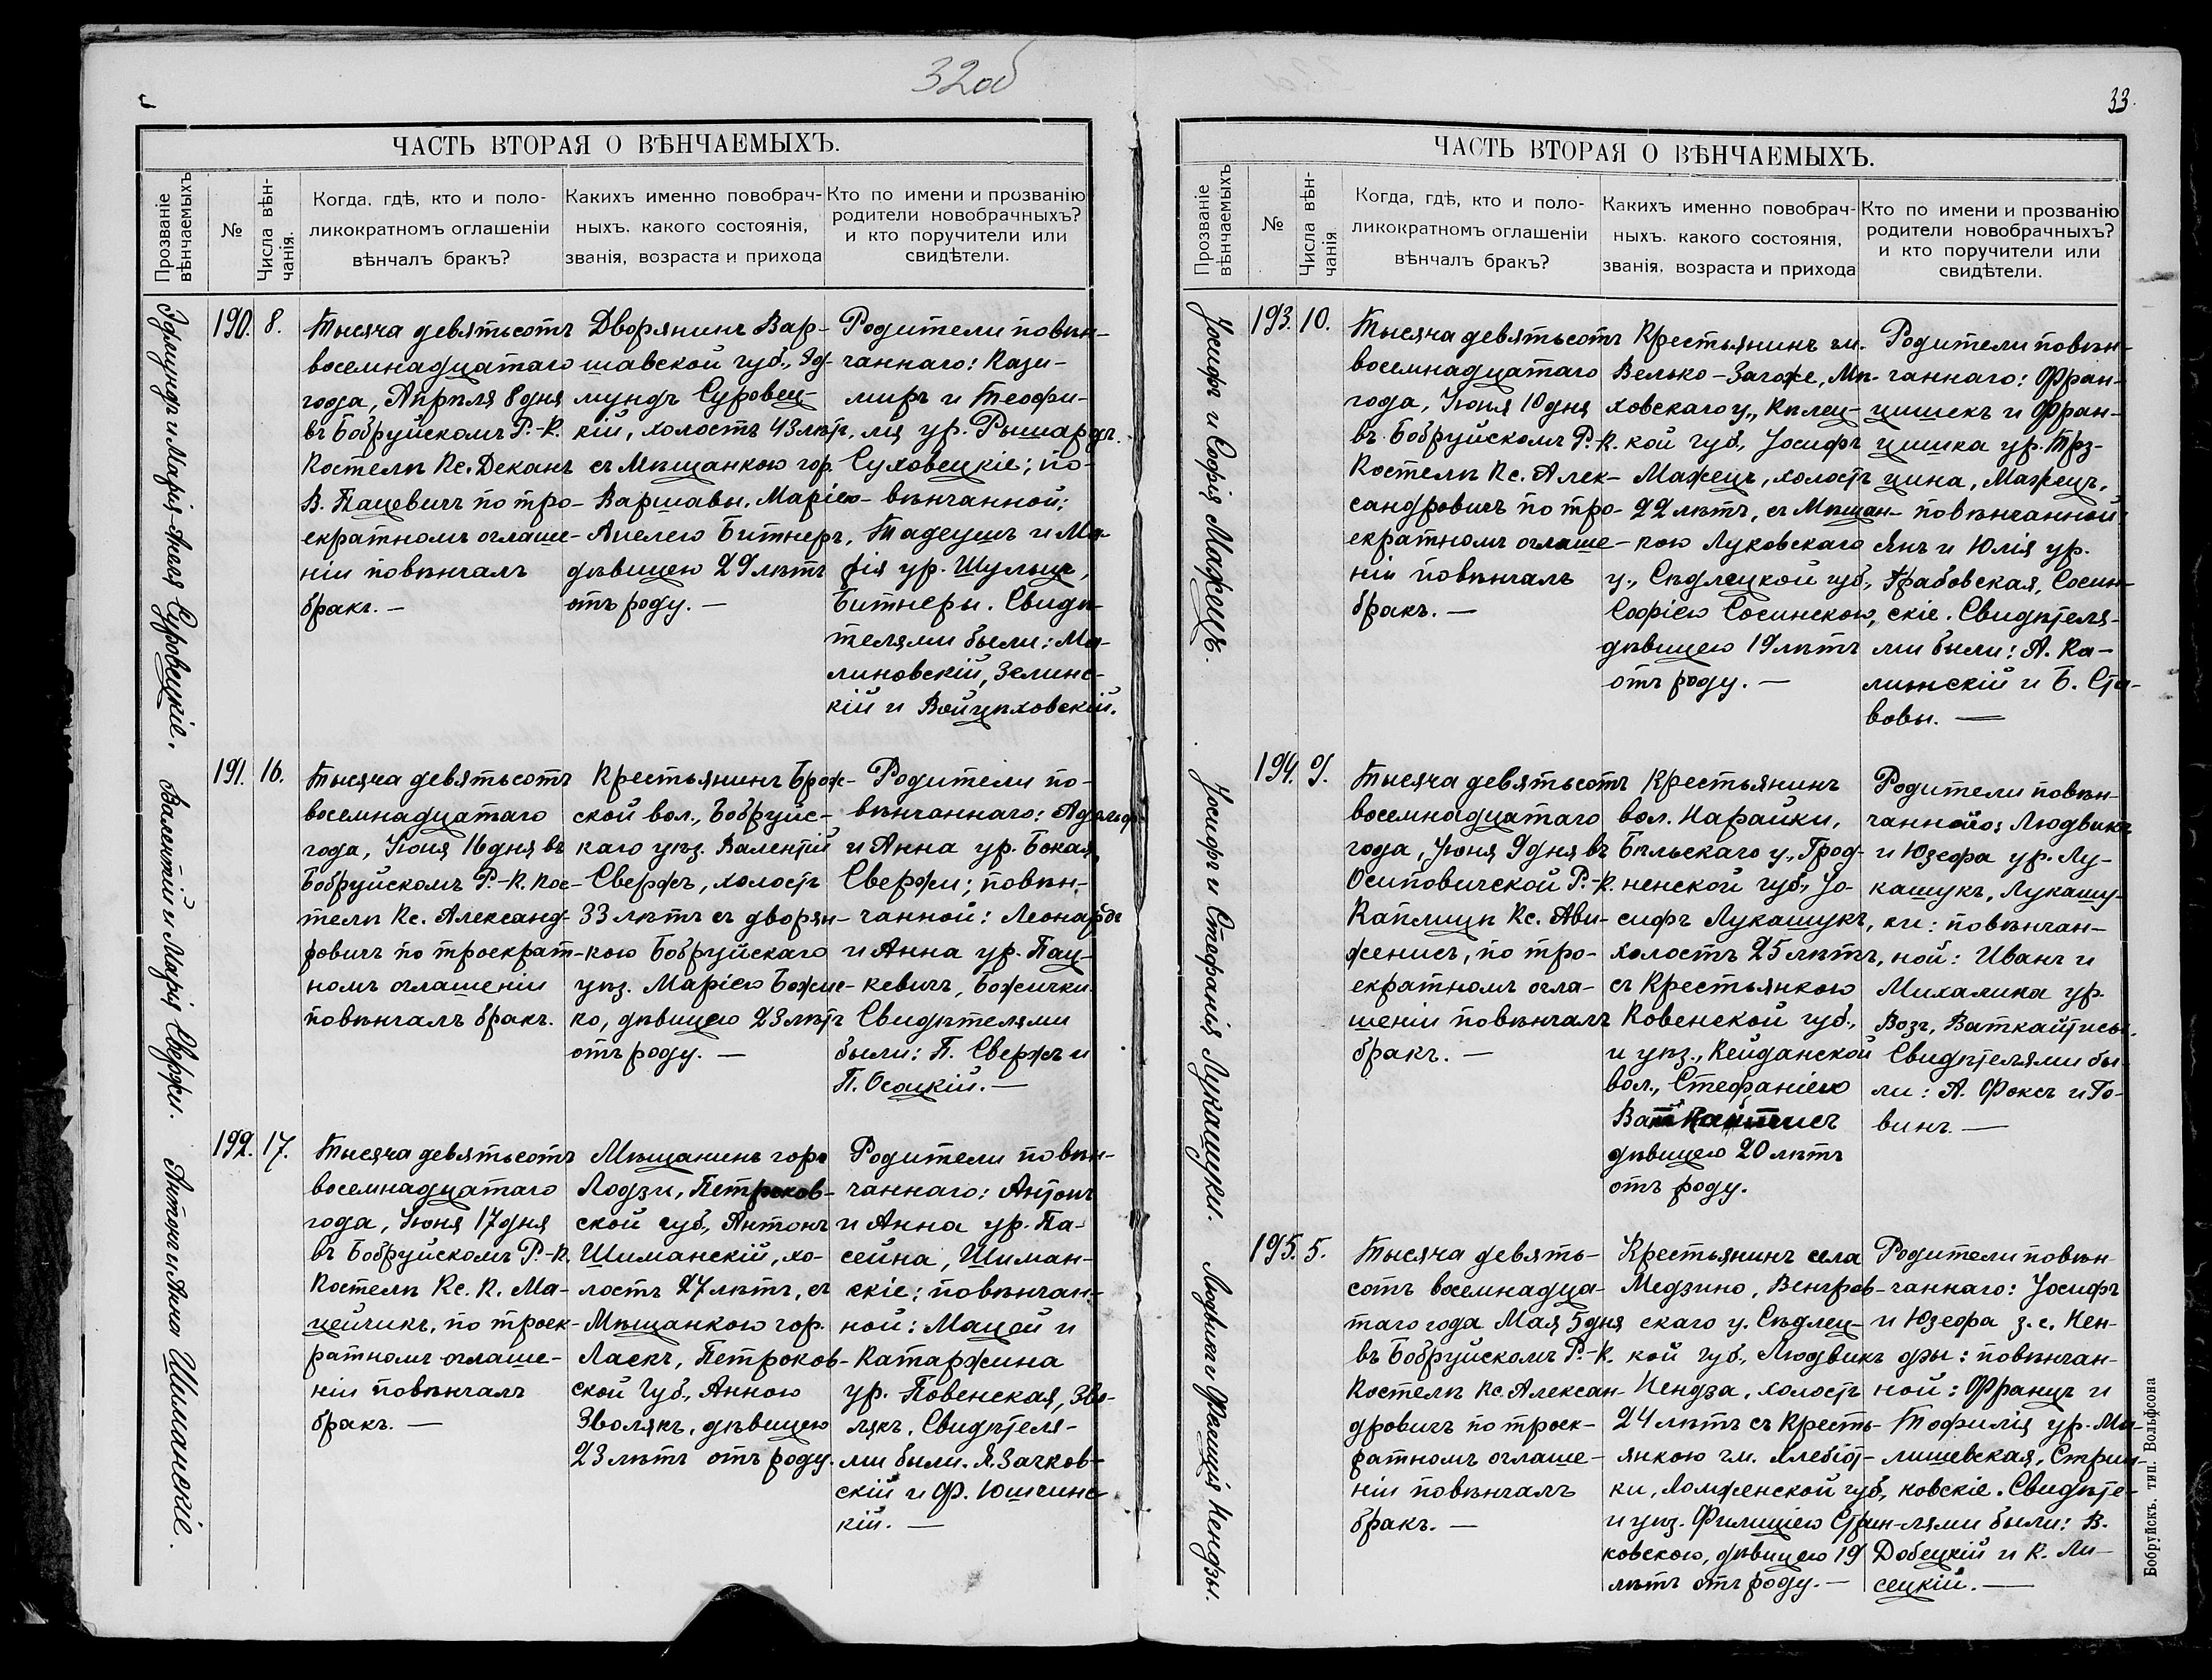 32об
ЧАСТЬ ВТОРАЯ О ВѢНЧАЕМЫХЪ.
Прозваніе
вѣнчаемыхъ
№
Числа вѣн-
чанія.
Когда, гдѣ, кто и поло-
ликократномъ оглашеніи
вѣнчалъ бракъ?
Какихъ именно повобрач-
ныхъ. какого состоянія,
званія, возраста и прихода
Кто по имени и прозванію
родители новобрачныхъ?
и кто поручители или
свидѣтели.
Эдмундъ и Марія-Анеля Суровецкіе.
190.
8.
Тысяча девятьсотъ
восемнадцатаго
года, Апрѣля 8 дня
въ Бобруйскомъ Р.-К.
Костелѣ Кс. Деканъ
В. Пацевичъ по тро-
екратномъ оглаше-
ніи повѣнчалъ
бракъ. —
Дворянинъ Вар-
шавской губ., Эд-
мундъ Суровец-
кій, холостъ 43 лѣтъ,
съ Мѣщанкою гор.
Варшавы, Маріею-
Анелею Битнеръ,
дѣвицею 29 лѣтъ
отъ роду. —
Родители повѣн-
чаннаго: Кази-
миръ и Теофи-
лія ур. Рышардъ.
Суховецкіе; по-
вѣнчанной:
Тадеушъ и Ма-
рія ур. Шульцъ,
Битнеры. Свидѣ-
телями были: Ма-
линовскій, Зелинс-
кій и Войцѣховскій.
Валентій и Марія Свержи.
191.
16.
Тысяча девятьсотъ
восемнадцатаго
года, Іюня 16 дня въ
Бобруйскомъ Р.-К. Кос-
телѣ Кс. Александ-
ровичъ по троекрат-
номъ оглашеніи
повѣнчалъ бракъ.
Крестьянинъ Брож-
ской вол., Бобруйс-
каго уѣз. Валентій
Свержъ, холостъ
33 лѣтъ съ дворян-
кою Бобруйскаго
уѣз. Маріею Божич-
ко, дѣвицею 23 лѣтъ
отъ роду. —
Родители по-
вѣнчаннаго: Адольфъ
и Анна ур. Бокая,
Свержи; повѣн-
чанной: Леонардъ
и Анна ур. Пац-
кевичъ, Божички.
Свидѣтелями
были: П. Свержъ и
П. Осацкій. —
Антонъ и Анна Шиманскіе.
192.
17.
Тысяча девятьсотъ
восемнадцатаго
года, Іюня 17 дня
въ Бобруйскомъ Р.-К.
Костелѣ Кс. К. Ма-
цейчикъ, по троек-
ратномъ оглаше-
ніи повѣнчалъ
бракъ. —
Мѣщанинъ гор.
Лодзи, Петроков-
ской губ., Антонъ
Шиманскій, хо-
лостъ 27 лѣтъ, съ
Мѣщанкою гор.
Ласкъ, Петроков-
ской Губ., Анною
Зволякъ, дѣвицею
23 лѣтъ отъ роду.
Родители повѣн-
чаннаго: Антонъ
и Анна ур. Па-
сейна, Шиман-
скіе; повѣнчан-
ной: Мацей и
Катаржина
ур. Повенская, Зво-
лякъ. Свидѣтеля-
ми были. Я. Зачков-
скій и Ф. Юшчинс-
кій. —
33.
ЧАСТЬ ВТОРАЯ О ВѢНЧАЕМЫХЪ.
Прозваніе
вѣнчаемыхъ
№
Числа вѣн-
чанія
Когда, гдѣ, кто и поло-
ликократномъ оглашеніи
вѣнчалъ бракъ?
Какихъ именно повобрач-
ныхъ. какого состоянія,
званія, возраста и прихода
Кто по имени и прозванію
родители новобрачныхъ?
и кто поручители или
свидѣтели.
Іосифъ и Софія Мажецъ.
193.
10.
Тысяча девятьсотъ
восемнадцатаго
года, Іюня 10 дня
въ Бобруйскомъ Р.-К.
Костелѣ Кс. Алек-
сандровичъ по тро-
екратномъ оглаше-
ніи повѣнчалъ
бракъ. —
Крестьянинъ гм.
Велько-Загоже, Мѣ-
ховскаго у., Кѣлец-
кой губ., Іосифъ
Мажецъ, холостъ
22 лѣтъ, съ Мѣщан-
кою Луковскаго
у., Сѣдлецкой губ.,
Софіею Сосинскою,
дѣвицею 19 лѣтъ
отъ роду. —
Родители повѣн-
чаннаго: Фран-
цишекъ и Фран-
цишка ур. Трз-
цина, Мажецъ,
повѣнчанной:
Янъ и Юлія ур.
Грабовская, Сосин-
скіе. Свидѣтеля-
ми были: А. Ка-
линскій и Б. Ста-
вовы. —
Іосифъ и Стефанія Лукашуки.
194.
9.
Тысяча девятьсотъ
восемнадцатаго
года, Іюня 9 дня въ
Осиповичской Р.-К.
Каплицѣ Кс. Ави-
женисъ, по тро-
екратномъ огла-
шеніи повѣнчалъ
бракъ. —
Крестьянинъ
вол. Нарайки,
Бѣльскаго у., Грод-
ненской губ., Іо-
сифъ Лукашукъ,
холостъ 25 лѣтъ,
съ Крестьянкою
Ковенской губ.,
и уѣз., Кейданской
вол., Стефаніею
дѣвицею 20 лѣтъ
отъ роду.
Родители повѣн-
чанного: Людвикъ
и Юзефа ур. Лу-
кашукъ, Лукашу-
ки: повѣнчан-
ной: Иванъ и
Михалина ур.
Возъ, Ваткайтисы.
Свидѣтелями бы-
ли: А. Фоксъ и Го-
винъ. —
Людвикъ и Фелиція Нендзы.
195.
5.
Тысяча девять-
сотъ восемнадца-
таго года Мая 5 дня
въ Бобруйскомъ Р.-К.
Костелѣ Кс. Алексан-
дровичъ по троек-
ратномъ оглаше-
ніи повѣнчалъ
бракъ. —
Крестьянинъ села
Медзино, Венгров-
скаго у. Сѣдлец-
кой губ., Людвикъ
Нендза, холостъ
24 лѣтъ съ Кресть-
янкою гм. Хлебіот-
ки, Ломженской губ.,
и уѣз. Фелиціею Стрын-
ковскою, дѣвицею 19
лѣтъ отъ роду. —
Родители повѣн-
чаннаго: Іосифъ
и Юзефа з. с. Нен-
дзы: повѣнчан-
ной: Францъ и
Тофилія ур. Ма-
лишевская, Стрын-
ковскіе. Свидѣте-
лями были: В.
Добецкій и К. Ли-
сецкій. —
Бобруйскъ. тип. Вольфсона